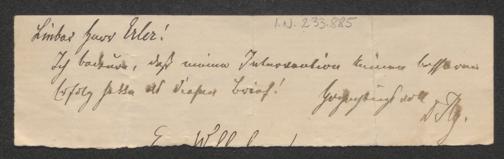 I.N. 233.885
Lieber Herr Erler!
Ich bedaure, daß meine Intervention keinen besseren
Erfolg hatte als diesen Brief! Hochachtungsvoll